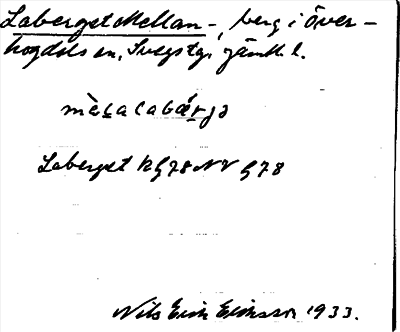 Laberget Mellan-, berg i Över-
hogdals sn, Svegs tg, Jämtl. l.
mèlalabárjə
Laberget Bl 78 NV g 78
Nils Erik Eriksson 1933.